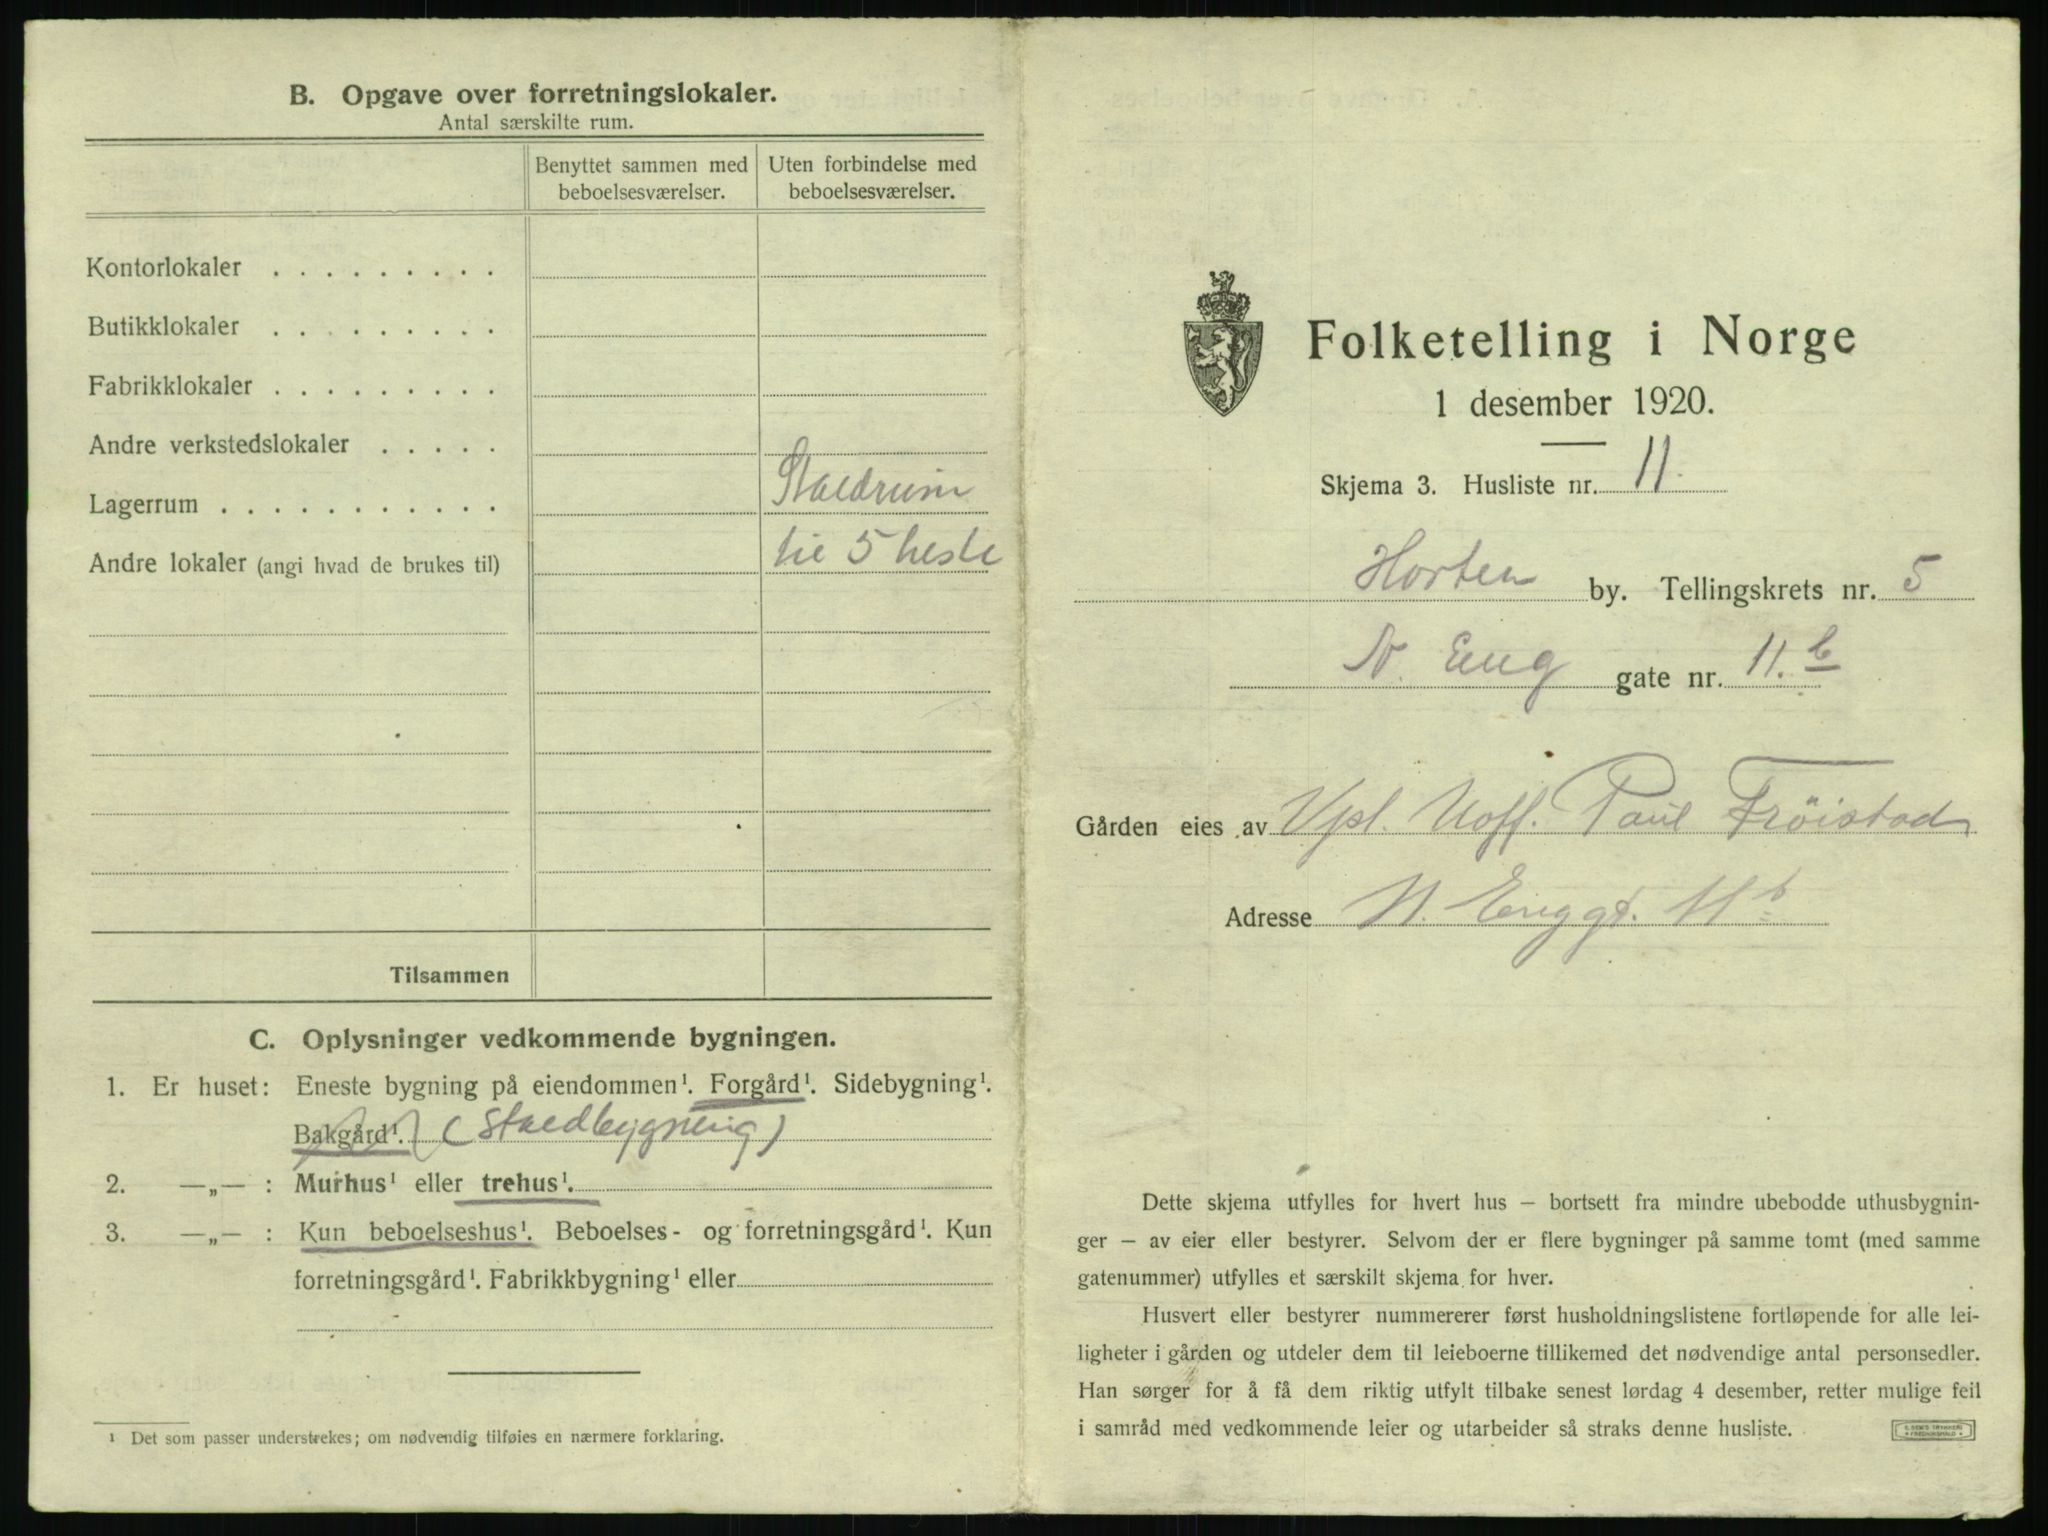 B. Opgave over forretningslokaler.
Antal særskilte rum.
Benyttet sammen med beboelsesværelser.
Uten forbindelse med beboelsesværelser.
Kontorlokaler . . . . . . . . .
Butikklokaler . . . . . . . . .
Fabrikklokaler . . . . . . . . .
Andre verkstedslokaler . . . . .
Lagerrum . . . . . . . . . . . Staldrum
Andre lokaler (angi hvad de brukes til) til 5 heste
Tilsammen
C. Oplysninger vedkommende bygningen.
1. Er huset: Eneste bygning på eiendommen¹. Forgård¹. Sidebygning¹.
Bakgård¹. (Staldbygning)
2. —„— : Murhus¹ eller trehus¹.
3. —„— : Kun beboelseshus¹. Beboelses- og forretningsgård¹. Kun
forretningsgård¹. Fabrikkbygning¹ eller
¹ Det som passer understrekes; om nødvendig tilføies en nærmere forklaring.
Folketelling i Norge
1 desember 1920.
Skjema 3. Husliste nr. 11.
Horten by. Tellingskrets nr. 5
N. Eng gate nr. 11.b
Gården eies av Vpl. Uoff. Paul Frøistad
Adresse N. Enggt. 11b
Dette skjema utfylles for hvert hus — bortsett fra mindre ubebodde uthusbygnin-
ger — av eier eller bestyrer. Selvom der er flere bygninger på samme tomt (med samme
gatenummer) utfylles et særskilt skjema for hver.
Husvert eller bestyrer nummererer først husholdningslistene fortløpende for alle lei-
ligheter i gården og utdeler dem til leieboerne tillikemed det nødvendige antal personsedler.
Han sørger for å få dem riktig utfylt tilbake senest lørdag 4 desember, retter mulige feil
i samråd med vedkommende leier og utarbeider så straks denne husliste.